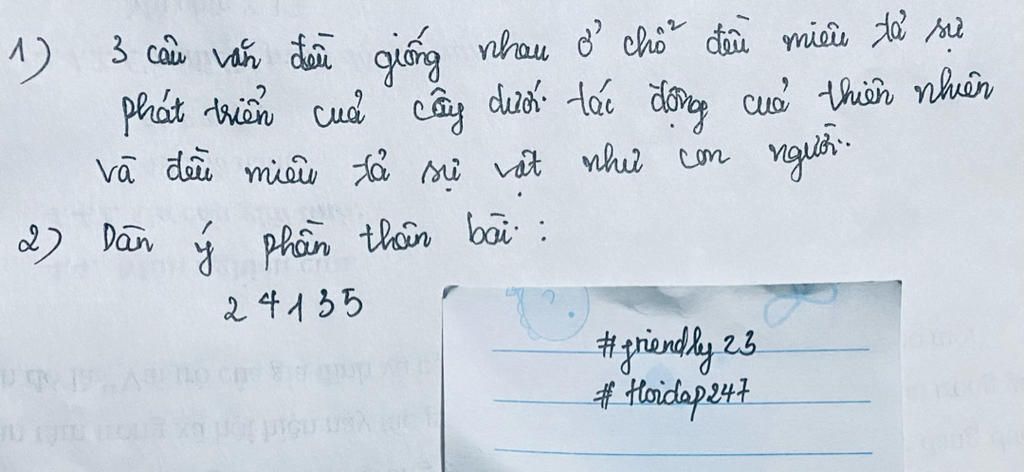 1) 3 câu văn đều giống nhau ở chỗ đều miêu tả sự
phát triển của cây dưới tác động của thiên nhiên
và đều miêu tả sự vật như con người.
2) Dàn ý phần thân bài :
2 4 1 3 5
#friendly23
#Hoidap247